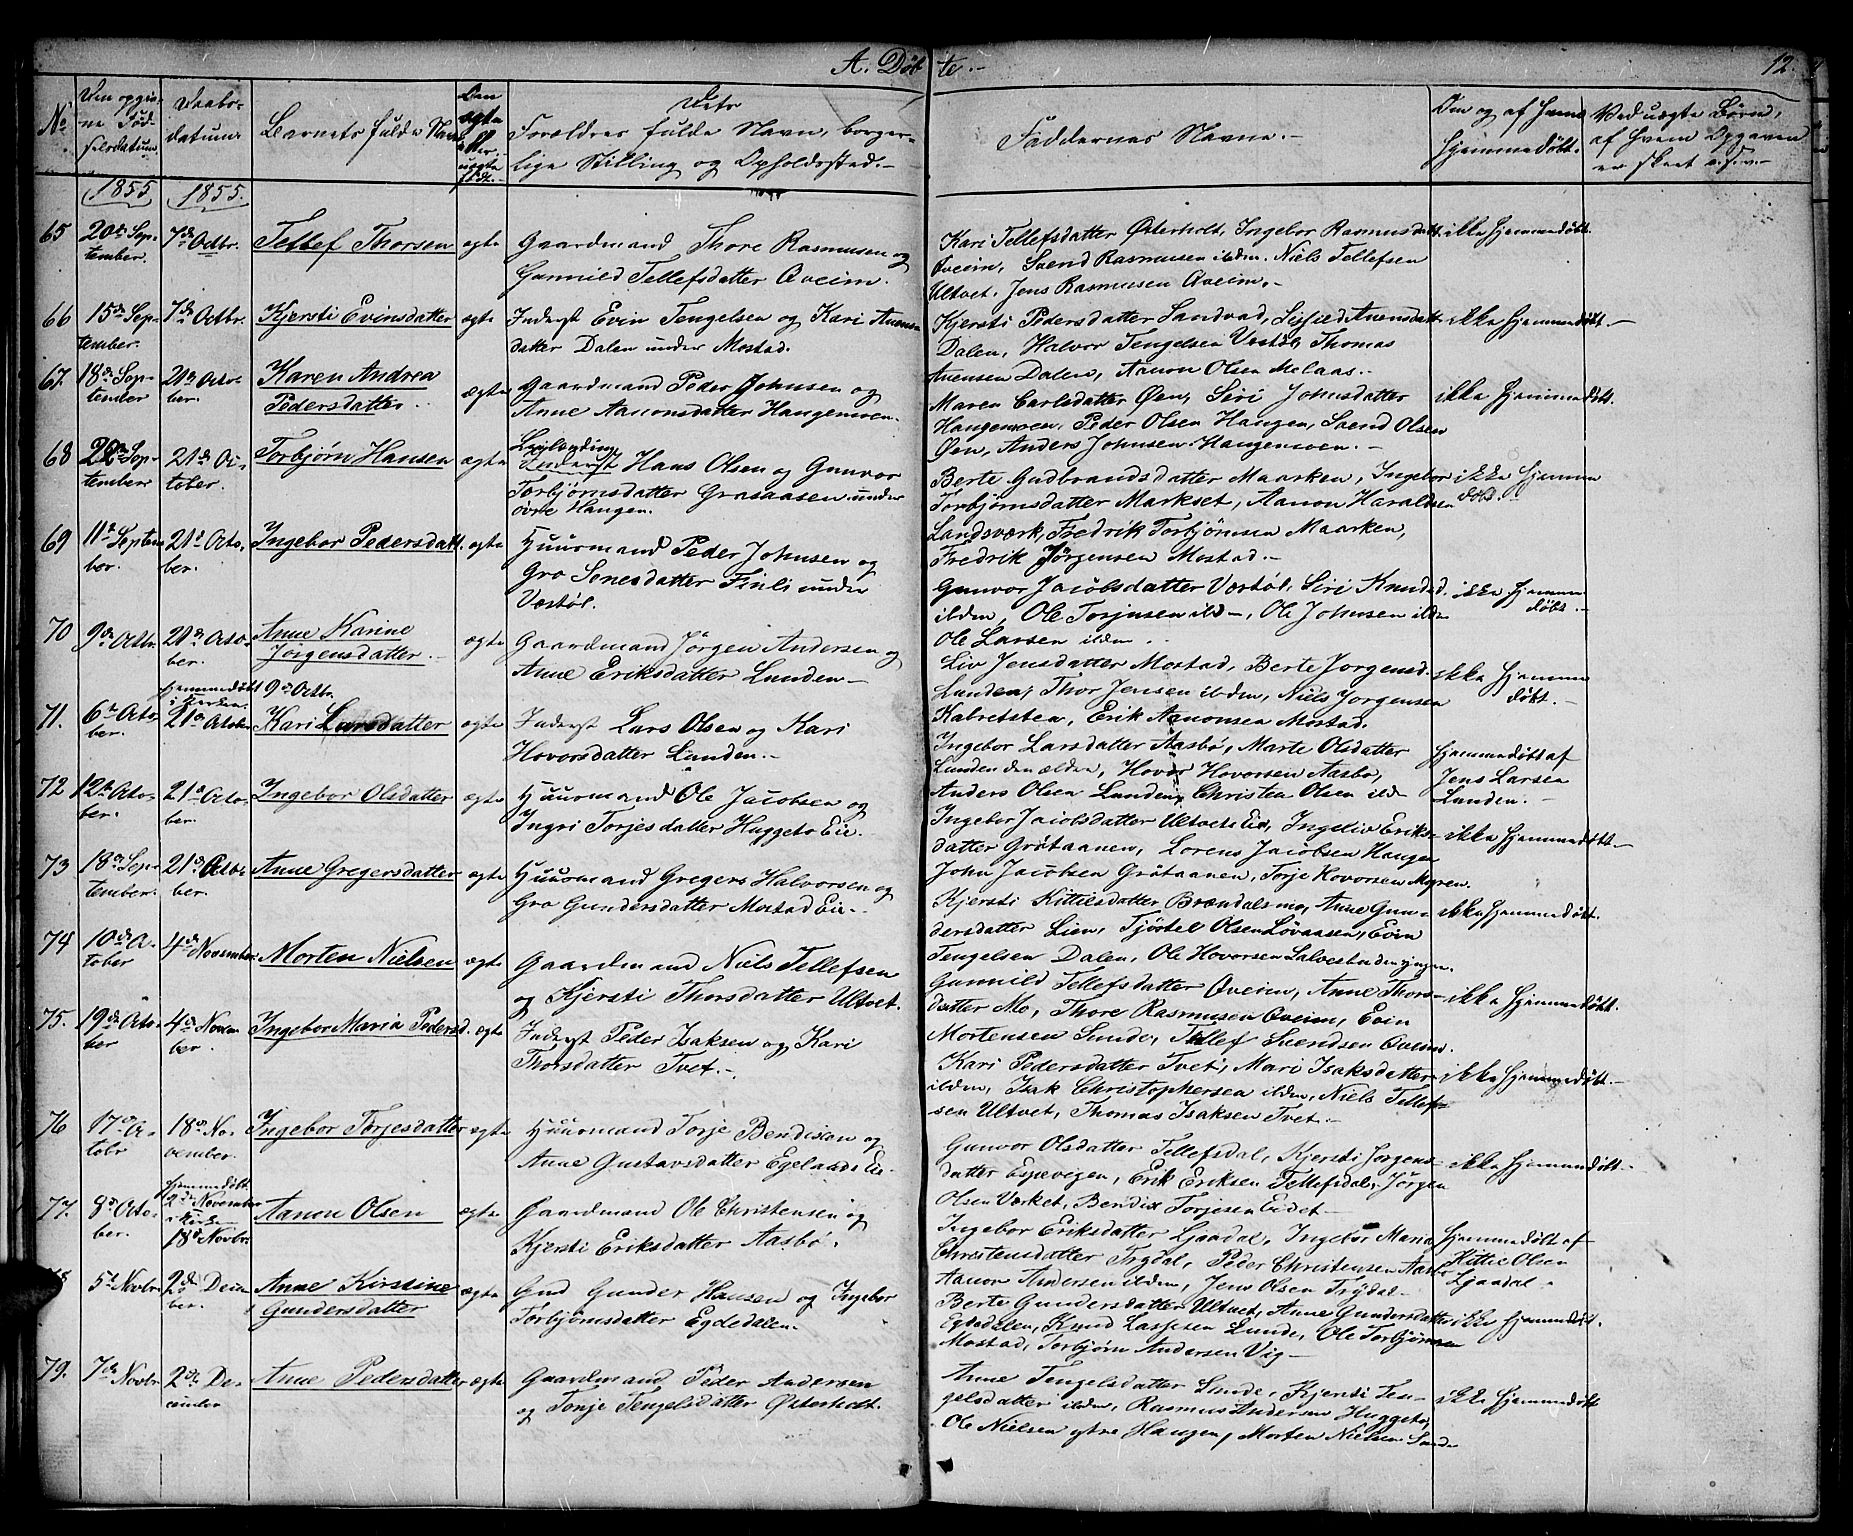 A. Døbte.-
12.
No
Den opgivne Fødselsdatum.
Daabsdatum
Barnets fulde Navn
Om ægte eller uægte født.-
Dets
Forældres fulde Navn, borgerlige Stilling og Opholdssted.-
Faddernes Navne.-
Om og af hvem hjemmedøbt.
Ved uægte Børn, af hvem Opgaven er skeet o.s.v.-
1855
1855.
65
20de September.
7de Octbr.
Tellef Thorsen
ægte
Gaardmand Thore Rasmusen og
Gunnild Tellefsdatter Øveim.
Kari Tellefsdatter Østerholt, Ingebor Rasmusdatt.
Øveim, Svend Rasmusen ilden. Niels Tellefsen
Ultvet. Jens Rasmusen Øveim.-
ikke hjemmedøbt.
66
15de September.
7de Octbr.
Kjersti Evinsdatter
ægte
Inderst Evin Tengelsen og Kari Anens-
datter Dalen under Mostad.
Kjersti Pedersdatter Sandvad, Sissild Anensdatt.
Dalen, Halvor Tengelsen Væstøl, Thomas
Anensen Dalen, Aanon Olsen Melaas.-
ikke hjemmedøbt.-
67.
18de September
21de October.
Karen Andrea
Pedersdatter.
ægte
Gaardmand Peder Johnsen og
Anne Aanonsdatter Haugenmoen.
Maren Carlsdatter Øen, Siri Johnsdatter
Haugemoen, Peder Olsen Haugen, Svend Olsen
Øen, Anders Johnsen Haugemoen.-
ikke hjemmedøbt.
68
22de September
21de October.
Torbjørn Hansen
ægte
Inderst Hans Olsen og Gunvor
Torbjørnsdatter Grasaasen under
øvre Haugen.
Berte Gudbrandsdatter Maarken, Ingebor
Torbjørnsdatter Markset, Aanon Haraldsen
Landsværk, Fredrik Torbjørnsen Maarken,
Fredrik Jørgensen Mostad.-
ikke hjemmedøbt.
69
11te September
21de October.
Ingebor Pedersdatt.
ægte
Huusmand Peder Johnsen og
Gro Senesdatter Finli under
Væstøl.
Gunvor Jacobsdatter Væstøl, Siri Knudsd.
ilden, Ole Torjusen ild-, Ole Johnsen ilden
Ole Larsen ilden.
ikke hjemmedøbt.-
70
9de Octbr.
21de October.
Anne Karine
Jørgensdatter.
ægte
Gaardmand Jørgen Andersen og
Anne Eriksdatter Lunden-
Liv Jensdatter Mostad, Berte Jørgensd.
Lunden, Thor Jensen ilden, Niels Jørgensen
Kabretsten, Erik Aanonsen Mostad.
ikke hjemmedøbt.-
71.
6te October.
hjemmedøbt 9de Octbr.
i Kirken
21de October
Kari Larsdatter
ægte
Inderst Lars Olsen og Kari
Hovorsdatter Lunden.-
Ingebor Larsdatter Aasbø, Marte Olsdatter
Lunden den ældre, Hovor Hovorsen Aasbø,
Anders Olsen Lunden, Christen Olsen ild-
hjemmedøbt af
Jens Larsen
Lunden.-
72
12te October.
21de October.
Ingebor Olsdatter
ægte
Huusmand Ole Jacobsen og
Ingri Torjesdatter Huggeto Eie.
Ingebor Jacobsdatter Ultvets Eie, Ingeliv Eriks-
datter Grøtaanen, Lorens Jacobsen Haugen
John Jacobsen Grøtaanen, Torje Hovorsen Myren.
ikke hjemmedøbt.-
73
18de September.
21de October.
Anne Gregersdatter
ægte
Huusmand Gregers Halvorsen og
Gro Gundersdatter Mostad Eie.
Kjersti Kittilsdatter Brændalsmo, Anne Gun-
dersdatter Lien, Tjøstel Olsen Løvaasen, Evin
Tengelsen Dalen, Ole Hovorsen Salvesbu den yngre.
ikke hjemmedøbt.
74
10de October
4de November
Morten Nielsen
ægte
Gaardmand Niels Tellefsen
og Kjersti Thorsdatter Ultvet.
Gunnild Tellefsdatter Øveim, Anne Thors-
datter Mo, Thore Rasmusen Øveim, Evin
Mortensen Lunde, Tellef Svendsen Øveim.
ikke hjemmedøbt.
75.
19de October
4de November.
Ingebor Maria Pedersd.
ægte
Inderst Peder Isaksen og Kari
Thorsdatter Tvet.-
Kari Pedersdatter Tvet, Mari Isaksdatter
ilden, Isak Christophersen ilden, Niels Tellef-
sen Ultvet, Thomas Isaksen Tvet.-
ikke hjemmedøbt.-
76
17de Octobr
18de November.
Ingebor Torjesdatter
ægte
Huusmand Torje Bendixen og
Anne Gustavsdatter Egelands Eie.
Gunvor Olsdatter Tellefsdal, Kjersti Jørgens-
datter Espevigen, Erik Eriksen Tellefsdal, Jørgen
Olsen Værket, Bendix Torjesen Eidet-
ikke hjemmedøbt.-
77.
8de October.
hjemmedøbt
2de November
i Kirken
18de Novbr.
Aanon Olsen
ægte
Gaardmand Ole Christensen og
Kjersti Eriksdatter Aasbø.
Ingebor Eriksdatter Ljaadal, Ingebor Maria
Christensdatter Trydal, Peder Christensen Aasbø
Aanon Andersen ilden, Jens Olsen Trydal.
hjemmedøbt af
Kittil Olsen
Ljaadal.
78
5te Novbr.
2de December.
Anne Kirstine
Gundersdatter
ægte
Gmd Gunder Hansen og Ingebor
Torbjørnsdatter Egdedalen.
Berte Gundersdatter Ultvet, Anne Gundersdatter
Egdedalen, Knud Lassesen Lunde, Ole Torbjørnsen
Mostad, Torbjørn Andersen Vig-
ikke hjemmedøbt.
79.
7de Novbr
2de December
Anne Pedersdatter
ægte
Gaardmand Peder Andersen
og Tonje Tengelsdatter Østerholt.
Anne Tengelsdatter Lunde, Kjersti Ten-
gelsdatter ilden, Rasmus Andersen Huggeto,
Ole Nielsen ytre Haugen, Morten Nielsen Lunde
ikke hjemmedøbt